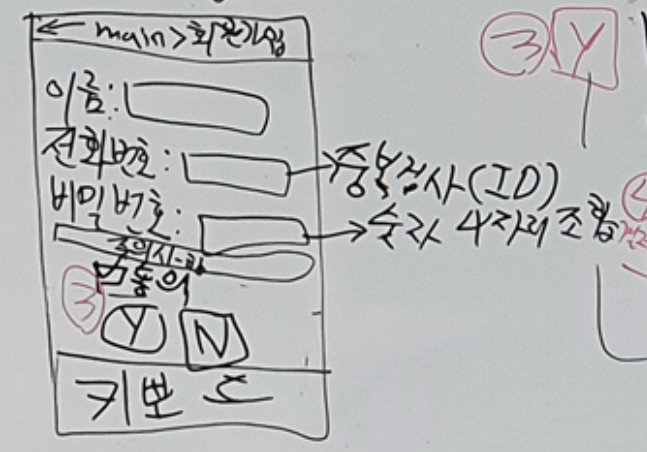 ← main > 회원가입
③ Y
이름:
전화번호: → 중복검사(ID)
비밀번호: → 숫자 4자리 조합
주의사항
③
Y N
키보드